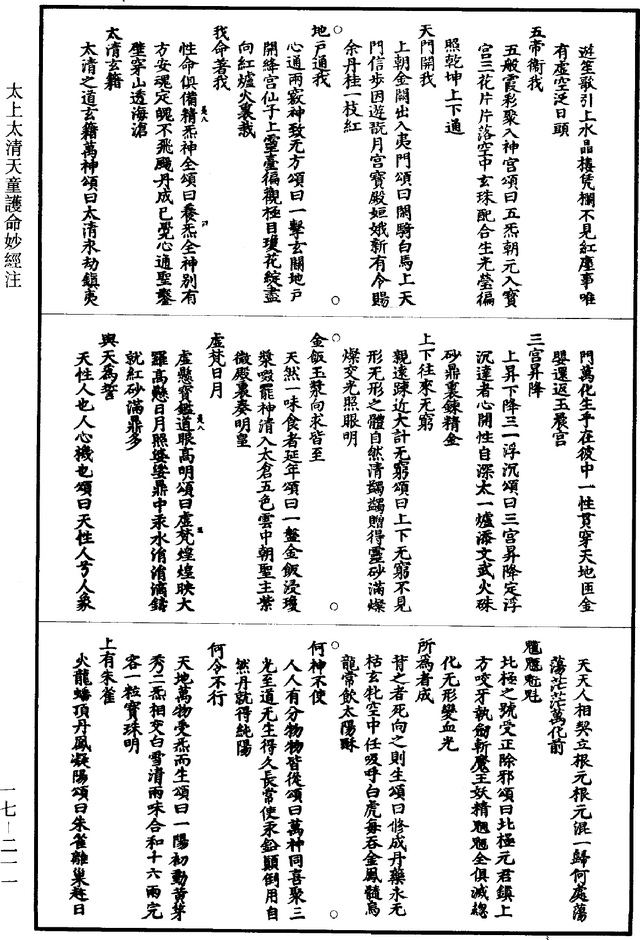 遊笙歌引上水晶樓凭欄不見紅塵事唯
有虛空泛日頭
五帝衛我
五般霞彩聚入神宮頌曰五炁朝元入寶
宮三花片片落空中玄珠配合生光瑩徧
照乾坤上下通
天門開我
上朝金闕出入夷門頌曰閑騎白馬上天
門信步因遊翫月宮寶殿姮娥新有令賜
余丹桂一枝紅
地户通我
心通兩竅神致无方頌曰一擊玄關地户
開絳宮仙子上靈臺徧觀極目瓊花綻盡
向紅爐火裏栽
我命著我
性命俱備精炁神全頌曰養炁全神别有
方安魂定魄不飛颺丹成已覺心通聖鑿
壁穿山透海滄
太清玄籍
太清之道玄籍萬神頌曰太清永劫鎮夷
門萬化生乎在彼中一性貫穿天地匝金
嬰還返玉晨宮
三宮昇降
上昇下降三一浮沉頌曰三宮昇降定浮
沉達者心開性自深太一爐添文武火硃
砂鼎裏鍊精金
上下往來无窮
親遠踈近大計无窮頌曰上下无窮不見
形无形之體自然清蠲蠲贈得靈砂滿燦
燦交光照眼明
金飯玉漿向求皆至
天然一味食者延年頌曰一盤金飯浸瓊
漿啜罷神清入太倉五色雲中朝聖主紫
微殿裏奏明皇
虛梵日月
虛懸寶鑑道眼高明頌曰虛梵煌煌映大
羅高懸日月照娑婆鼎中汞水涓涓滴鑄
就紅砂滿鼎多
與天為誓
天性人也人心機也頌曰天性人兮人象
天天人相契立根元根元混一歸何處蕩
蕩茫茫萬化前
北極之號受正除邪頌曰北極元君鎮上
方咬牙執劒斬魔王妖精魍魎全俱滅總
化无形變血光
所為者成
背之者死向之則生頌曰修成丹藥永无
枯玄牝空中任吸呼白虎每吞金鳳髓烏
龍常飲太陽酥
何神不使
人人有分物物皆從頌曰萬神同喜聚三
光至道无生得久長常使汞鉛顛倒用自
然丹就得純陽
何令不行
天地萬物受炁而生頌曰一陽初動黃芽
秀二炁相交白雪清兩味合和十六兩完
容一粒寶珠明
上有朱雀
火龍蟠頂丹鳳凝陽頌曰朱雀離巢趁日
太上太清天童護命妙經注
一七—二一一